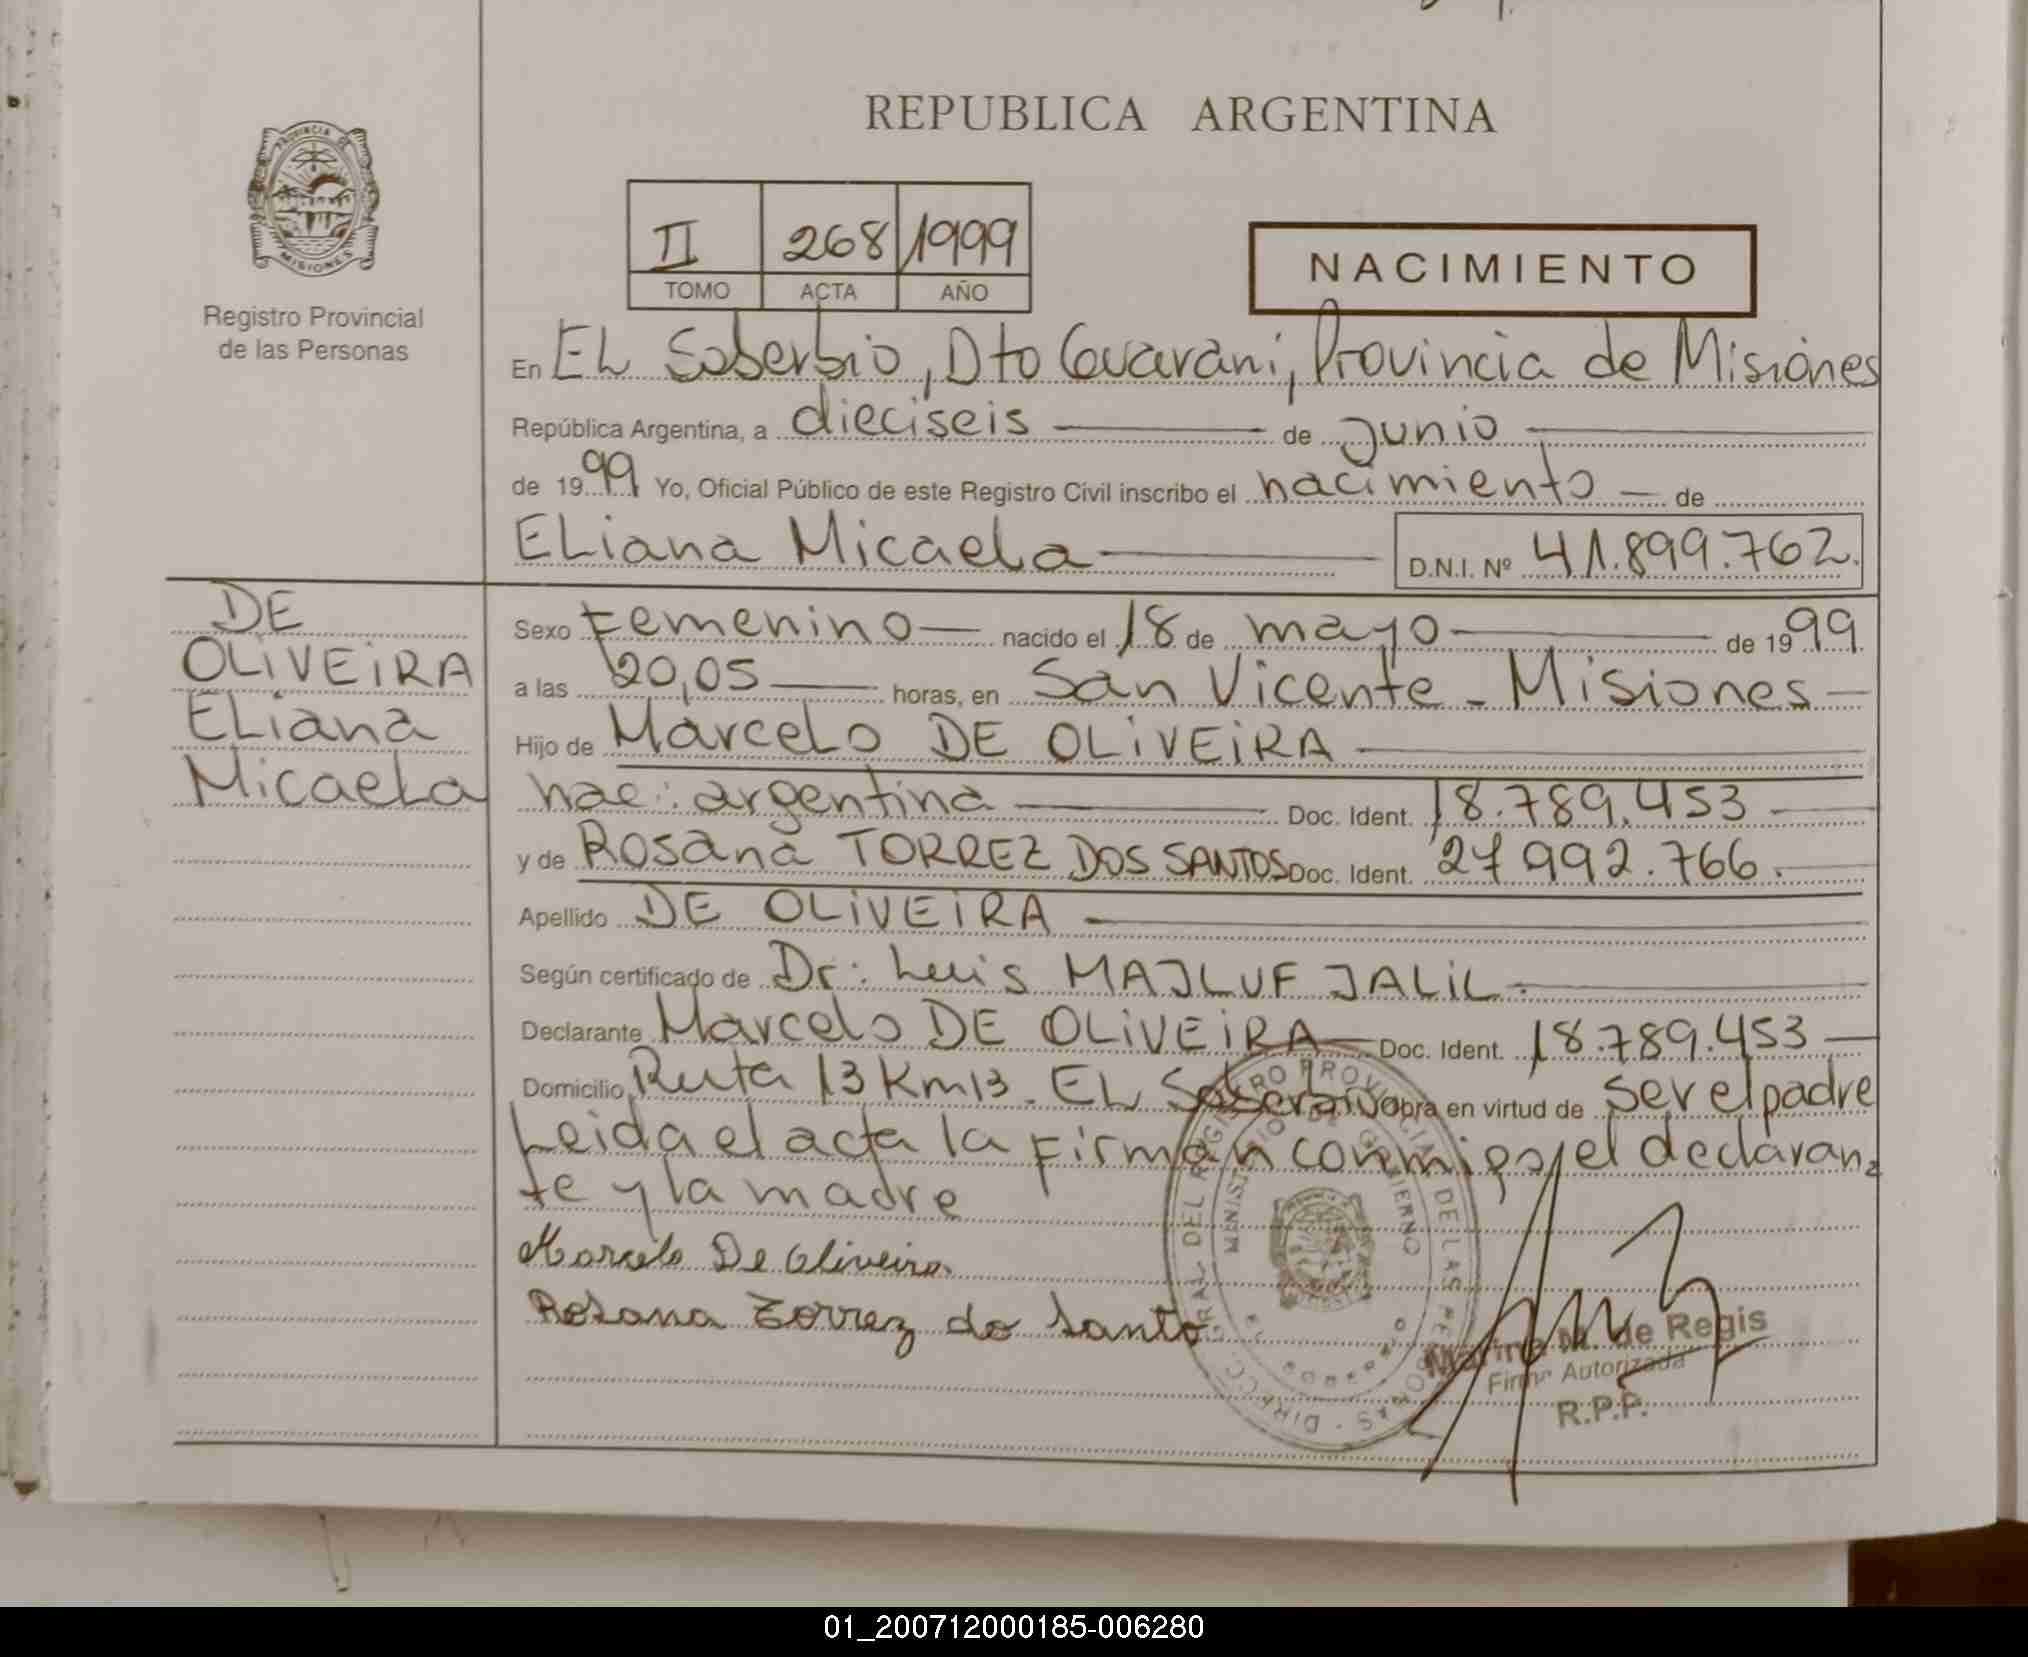 REPUBLICA ARGENTINA
PROVINCIA DE
MISIONES
Registro Provincial
de las Personas
II 268 1999
TOMO ACTA AÑO
NACIMIENTO
En EL Soberbio, Dto Guarani, Provincia de Misiones
República Argentina, a dieciseis de junio
de 1999 Yo, Oficial Público de este Registro Civil inscribo el nacimiento de
ELiana Micaela D.N.I. Nº 41.899.762.
DE
OLiVEiRA
ELiana
Micaela
Sexo Femenino nacido el 18 de mayo de 1999
a las 20,05 horas, en San Vicente - Misiones
Hijo de Marcelo DE OLiVEiRA
nac: argentina Doc. Ident. 18.789.453
y de Rosana TORREZ DOS SANTOS Doc. Ident. 27 992.766.
Apellido DE OLiVEiRA
Según certificado de Dr: Luis MAJLUF JALiL.
Declarante Marcelo DE OLiVEiRA Doc. Ident. 18.789.453
Domicilio Ruta 13 Km 13. EL Soberbio Obra en virtud de ser el padre
Leida el acta la Firman conmigo, el declaran
te y la madre
Marcelo De Oliveira
Rosana Torrez do Santo
DIRECC. GRAL. DEL REGISTRO PROVINCIAL DE LAS PERSONAS
MINISTERIO DE GOBIERNO
Marina M. de Regis
Firma Autorizada
R.P.P.
01_200712000185-006280